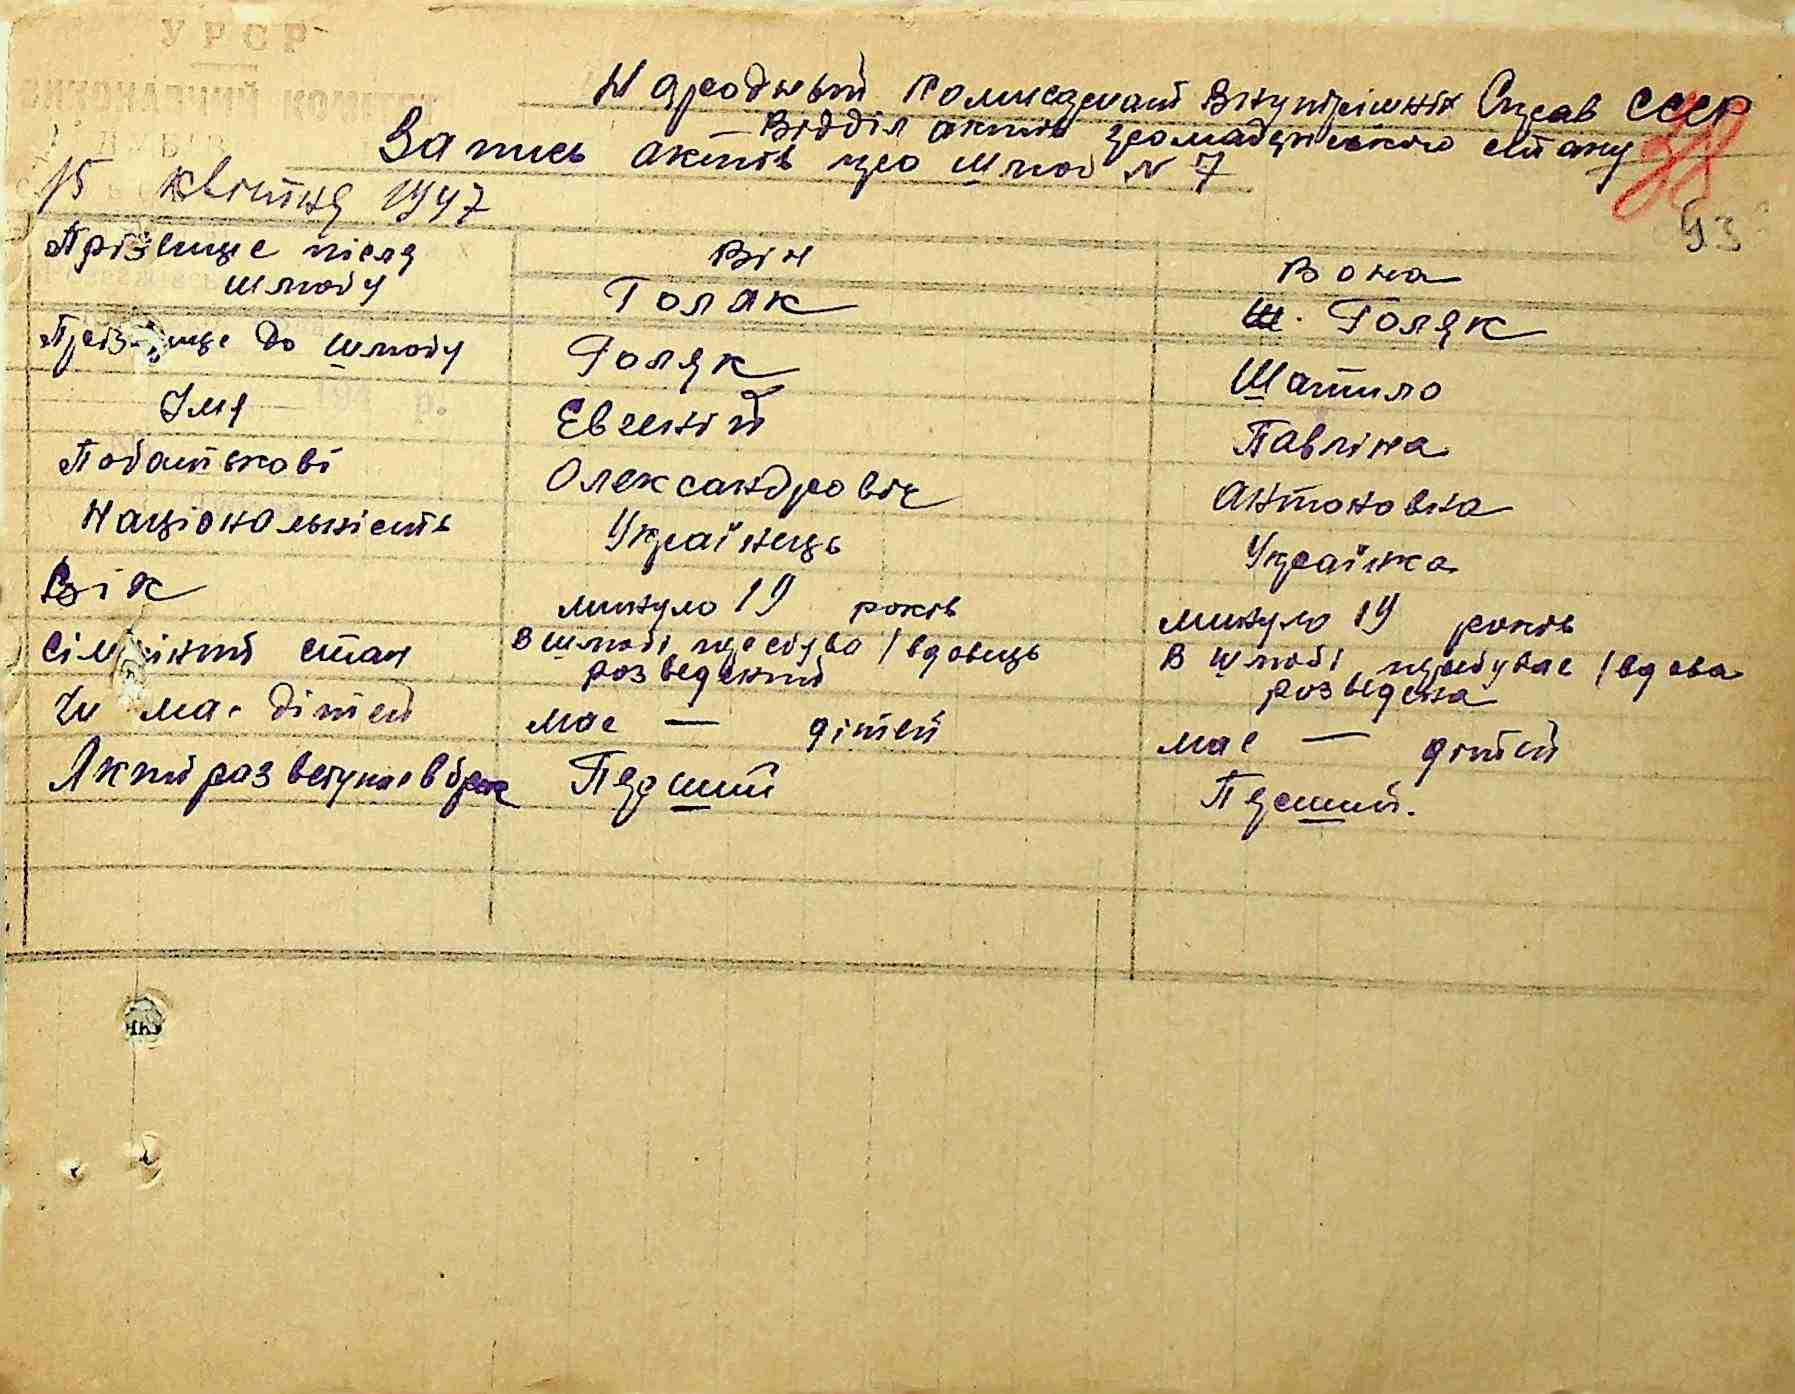 УРСР
ВИКОНАВЧИЙ КОМІТЕТ
Народный Комисариат Внутрішніх Справ СССР
Відділ актів громадянського стану
Запись актів про шлюб № 7
38
15 квітня 1947
93
Прізвище після шлюбу
Він
Вона
Голяк
Ш. Голяк
Прізвище до шлюбу
Голяк
Шатило
Імя
Евгений
Павліна
Побатькові
Олександровіч
Антоновна
194 р.
Національність
Українець
Українка
Вік
минуло 19 років
минуло 19 років
Сімейний стан
В шлюбі пребува / вдовець розведений
В шлюбі пребувае / вдова розведена
Чи має дітей
мае — дітей
мае — дітей
Який раз вступає в брак
Перший
Перший.